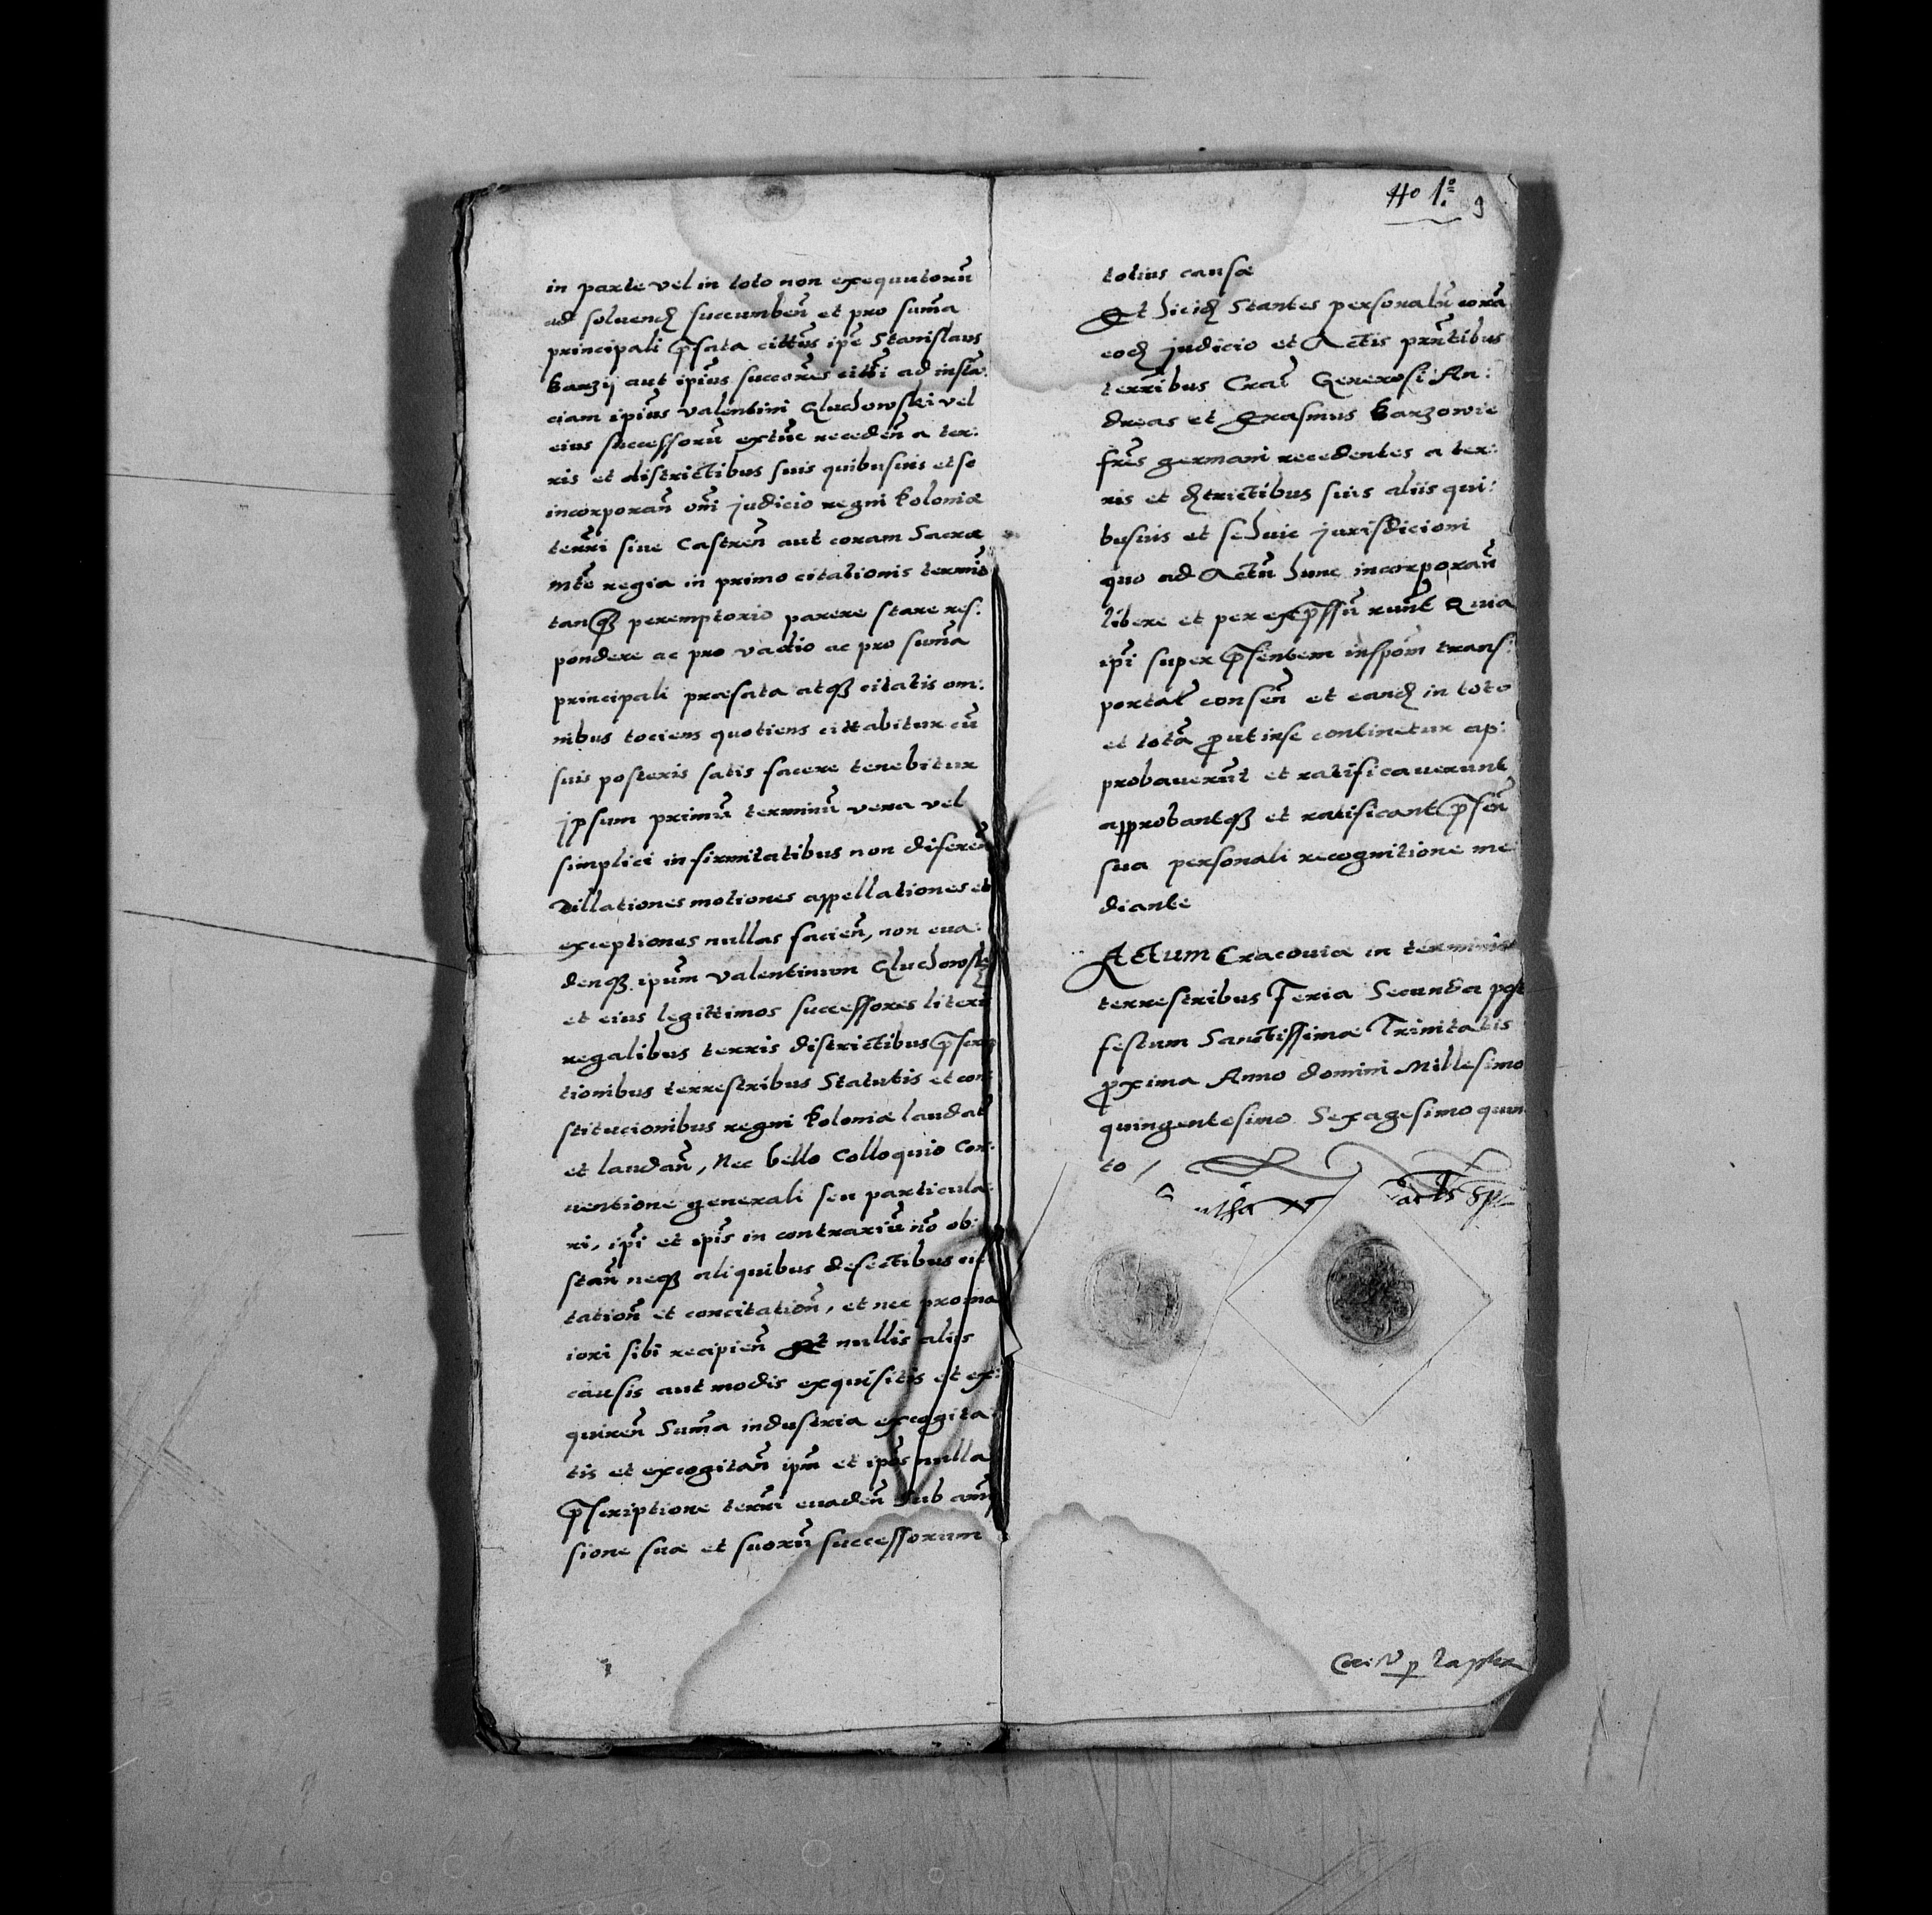 in parte vel in toto non exequutorũ
ad soluend succumbeñ et pro sum̃a
principali p̃fata citt̃us ip̃e Stanislaus
Barzÿ aut ip̃ius succor̃es citt̃i ad insta:
ciam ip̃ius Valentini Gluchowski vel
eius successorũ extũc recedeñ a ter:
ris et districtibus suis quibusuis et se
incorporañ om̃i judicio regni Poloniæ
terr̃i siue Castreñ aut coram Sacra
Mt̃e regia in primo citationis termio
tanq̃ peremptorio parere stare res:
pondere ac pro vadio ac pro sum̃a
principali præfata atq3 citatis om:
nibus tociens quotiens cittabitur cũ
suis posteris satis facere tenebitur
jpsum primũ terminũ vera vel
simplici infirmitatibus non difereñ
Dillationes motiones appellationes et
exceptiones nullas facieñ, non eua:
denq3 ipũm Valentinum Gluchowsk
et eius legittimos successores literis
regalibus terris districtibus p̃scrip
tionibus terrestribus Statutis et con
stitucionibus regni Poloniæ laudat̃
et laudañ, Nec bello Colloquio Con:
uentione generali seu particula:
ri, ip̃i et ip̃is in contrariũ nõ ob:
stañ neq3 aliquibus defectibus cit
tationũ et concitationũ, et nec pro ma
iori sibi recipieñ Et nullis aliis
causis aut modis exquisitis et ex:
quireñ Sum̃a industria excogita:
tis et excogitañ ip̃m et ip̃os nulla
p̃scriptione terr̃i euadeñ sub amĩ
sione suæ et suorũ successorum
No 1o 9
totius causæ
Et hicid Stantes personalr̃ corã
eod judicio et Actis prñtibus
terr̃ibus Crac̃ Generosi An:
dreas et Erasmus Barzowie
fr̃es germani recedentes a ter:
ris et dtrictibus suis aliis qui:
busuis et se huic jurisdicioni
quo ad Actũ hunc incorporañ
libere et per exp̃ssũ rec̃runt Quia
ip̃i super p̃sentem inspõm trans:
portat̃ conseñ et eand in toto
et totã p̃ut in se continetur ap:
probauerũt et ratificauerunt
approbantq3 et ratificant p̃señ
sua personali recognitione me
diante
Actum Cracouiæ in terminis
terrestribus Feria Secunda post
festum Sanctissimæ Trinitatis
p̃xima Anno domini Millesimo
quingentesimo Sexagesimo quin
to /